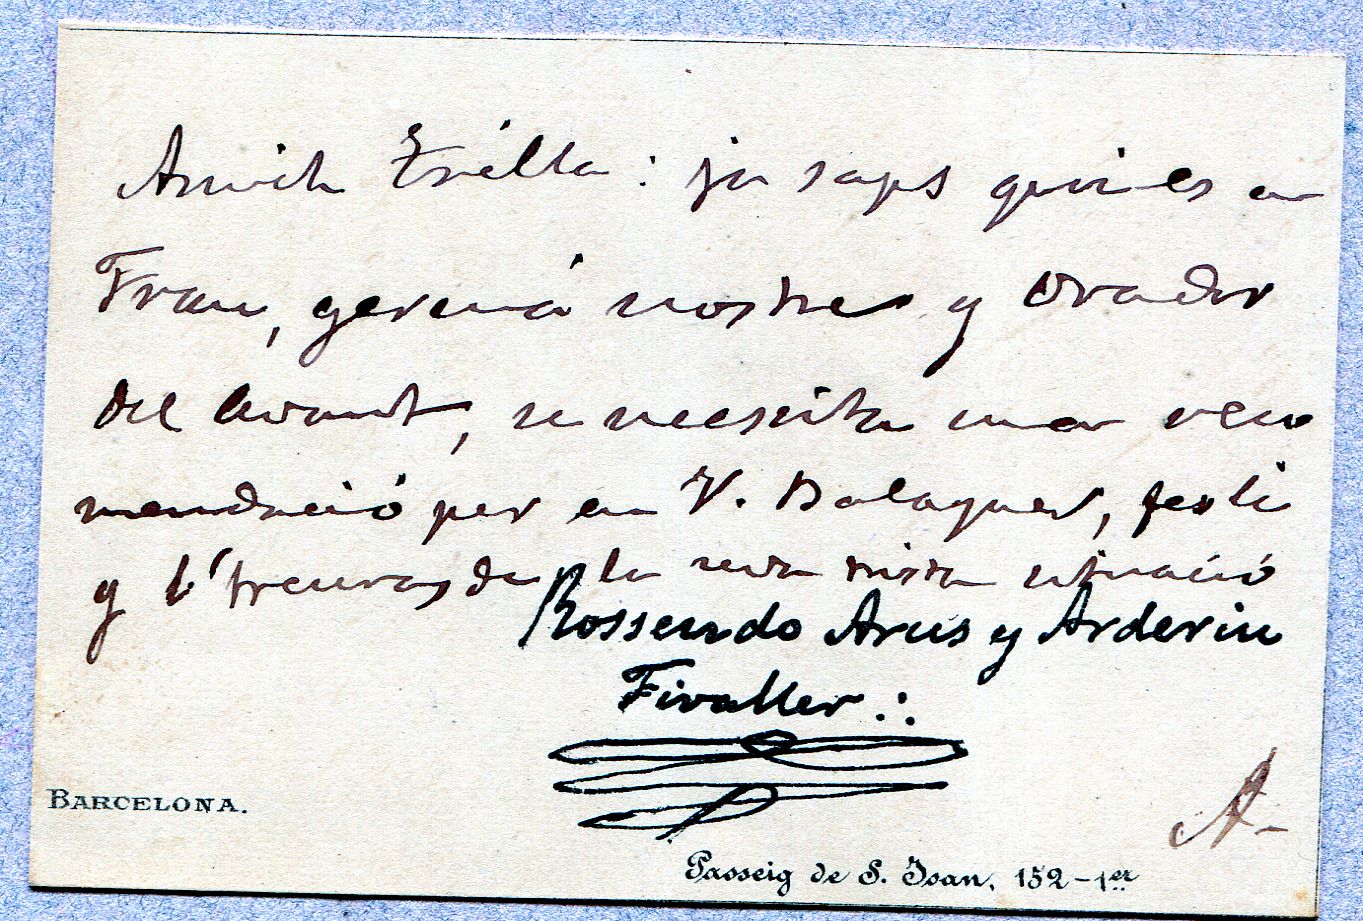 Amich Trilla: ja saps qui es en
Frau, germá nostre y orador
del Avant, se necesita una reco
mendació per en V. Balaguer, fesli
y l'treuras de la seva trista situació
Rossendo Arus y Arderiu
Fivaller ∴
BARCELONA.
A-
Passeig de S. Joan, 152-1er